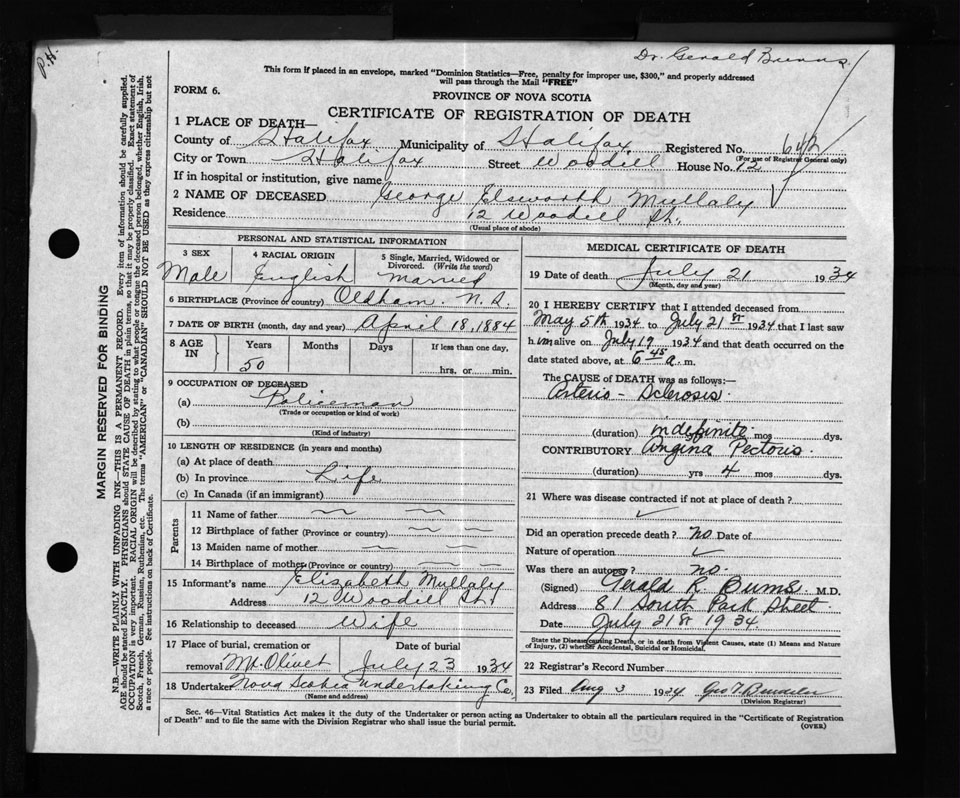 P.H.
Dr. Gerald Burns
This form if placed in an envelope, marked "Dominion Statistics—Free, penalty for improper use, $300," and properly addressed
will pass through the Mail "FREE"
FORM 6.
PROVINCE OF NOVA SCOTIA
CERTIFICATE OF REGISTRATION OF DEATH
1 PLACE OF DEATH—
County of Halifax Municipality of Halifax Registered No. 642
(For use of Registrar General only)
City or Town Halifax Street Woodill House No. 12
If in hospital or institution, give name
2 NAME OF DECEASED George Elsworth Mullaly
Residence 12 Woodill St.
(Usual place of abode)
PERSONAL AND STATISTICAL INFORMATION
3 SEX 4 RACIAL ORIGIN 5 Single, Married, Widowed or
Divorced. (Write the word)
Male English Married
6 BIRTHPLACE (Province or country) Oldham. N.S.
7 DATE OF BIRTH (month, day and year) April 18, 1884
8 AGE IN Years Months Days If less than one day,
50 hrs. or min.
9 OCCUPATION OF DECEASED
(a) Policeman
(Trade or occupation or kind of work)
(b)
(Kind of industry)
10 LENGTH OF RESIDENCE (in years and months)
(a) At place of death
(b) In province Life
(c) In Canada (if an immigrant)
Parents
11 Name of father
12 Birthplace of father (Province or country)
13 Maiden name of mother
14 Birthplace of mother (Province or country)
15 Informant's name Elizabeth Mullaly
Address 12 Woodill St.
16 Relationship to deceased Wife
17 Place of burial, cremation or Date of burial
removal Mt. Olivet July 23 1934
18 Undertaker Nova Scotia Undertaking Co.
(Name and address)
MEDICAL CERTIFICATE OF DEATH
19 Date of death July 21 1934
(Month, day and year)
20 I HEREBY CERTIFY that I attended deceased from
May 5th 1934 to July 21st 1934 that I last saw
h im alive on July 19 1934 and that death occurred on the
date stated above, at 6 45 a. m.
The CAUSE of DEATH was as follows:—
Arterio-Sclerosis.
(duration) indefinite mos dys.
CONTRIBUTORY Angina Pectoris.
(duration) yrs 4 mos dys.
21 Where was disease contracted if not at place of death?
Did an operation precede death? no Date of
Nature of operation
Was there an autopsy? no.
(Signed) Gerald R. Burns M.D.
Address 81 South Park Street
Date July 21st 1934.
State the Disease causing Death, or in death from Violent Causes, state (1) Means and Nature
of Injury, (2) whether Accidental, Suicidal or Homicidal.
22 Registrar's Record Number
23 Filed Aug 3 1934
(Division Registrar)
Sec. 46—Vital Statistics Act makes it the duty of the Undertaker or person acting as Undertaker to obtain all the particulars required in the "Certificate of Registration
of Death" and to file the same with the Division Registrar who shall issue the burial permit.
(OVER)
MARGIN RESERVED FOR BINDING
N.B.—WRITE PLAINLY WITH UNFADING INK—THIS IS A PERMANENT RECORD. Every item of information should be carefully supplied.
AGE should be stated EXACTLY. PHYSICIANS should STATE CAUSE OF DEATH in plain terms, so that it may be properly classified. Exact statement of
OCCUPATION is very important. RACIAL ORIGIN will be described by stating to what people or tongue the deceased person belonged, whether English, Irish,
Scotch, French, German, Russian, Ruthenian, etc. The terms "AMERICAN" or "CANADIAN" SHOULD NOT BE USED as they express citizenship but not
a race or people. See instructions on back of Certificate.